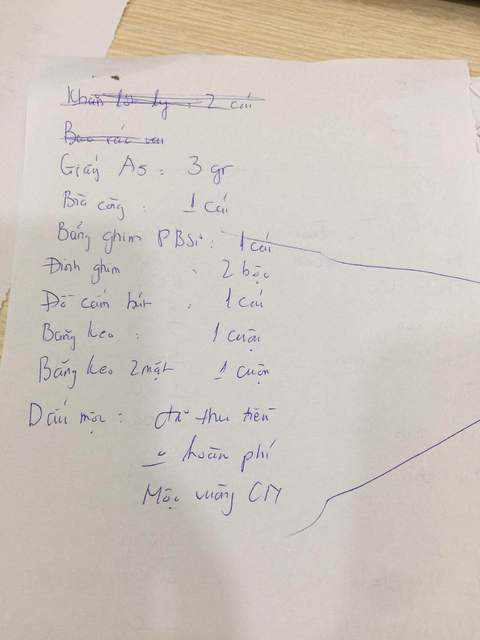 Khăn lau ly : 2 cái
Bao rác
Giấy A5 : 3 gr
Bìa còng : 1 cái
Bảng ghim : 1 cái
Đinh ghim : 2 hộc
Đồ cắm bút : 1 cái
Băng keo : 1 cuộn
Băng keo 2 mặt 1 cuộn
Dấu mọc : đã thu tiền
hoàn phí
Mộc vuông